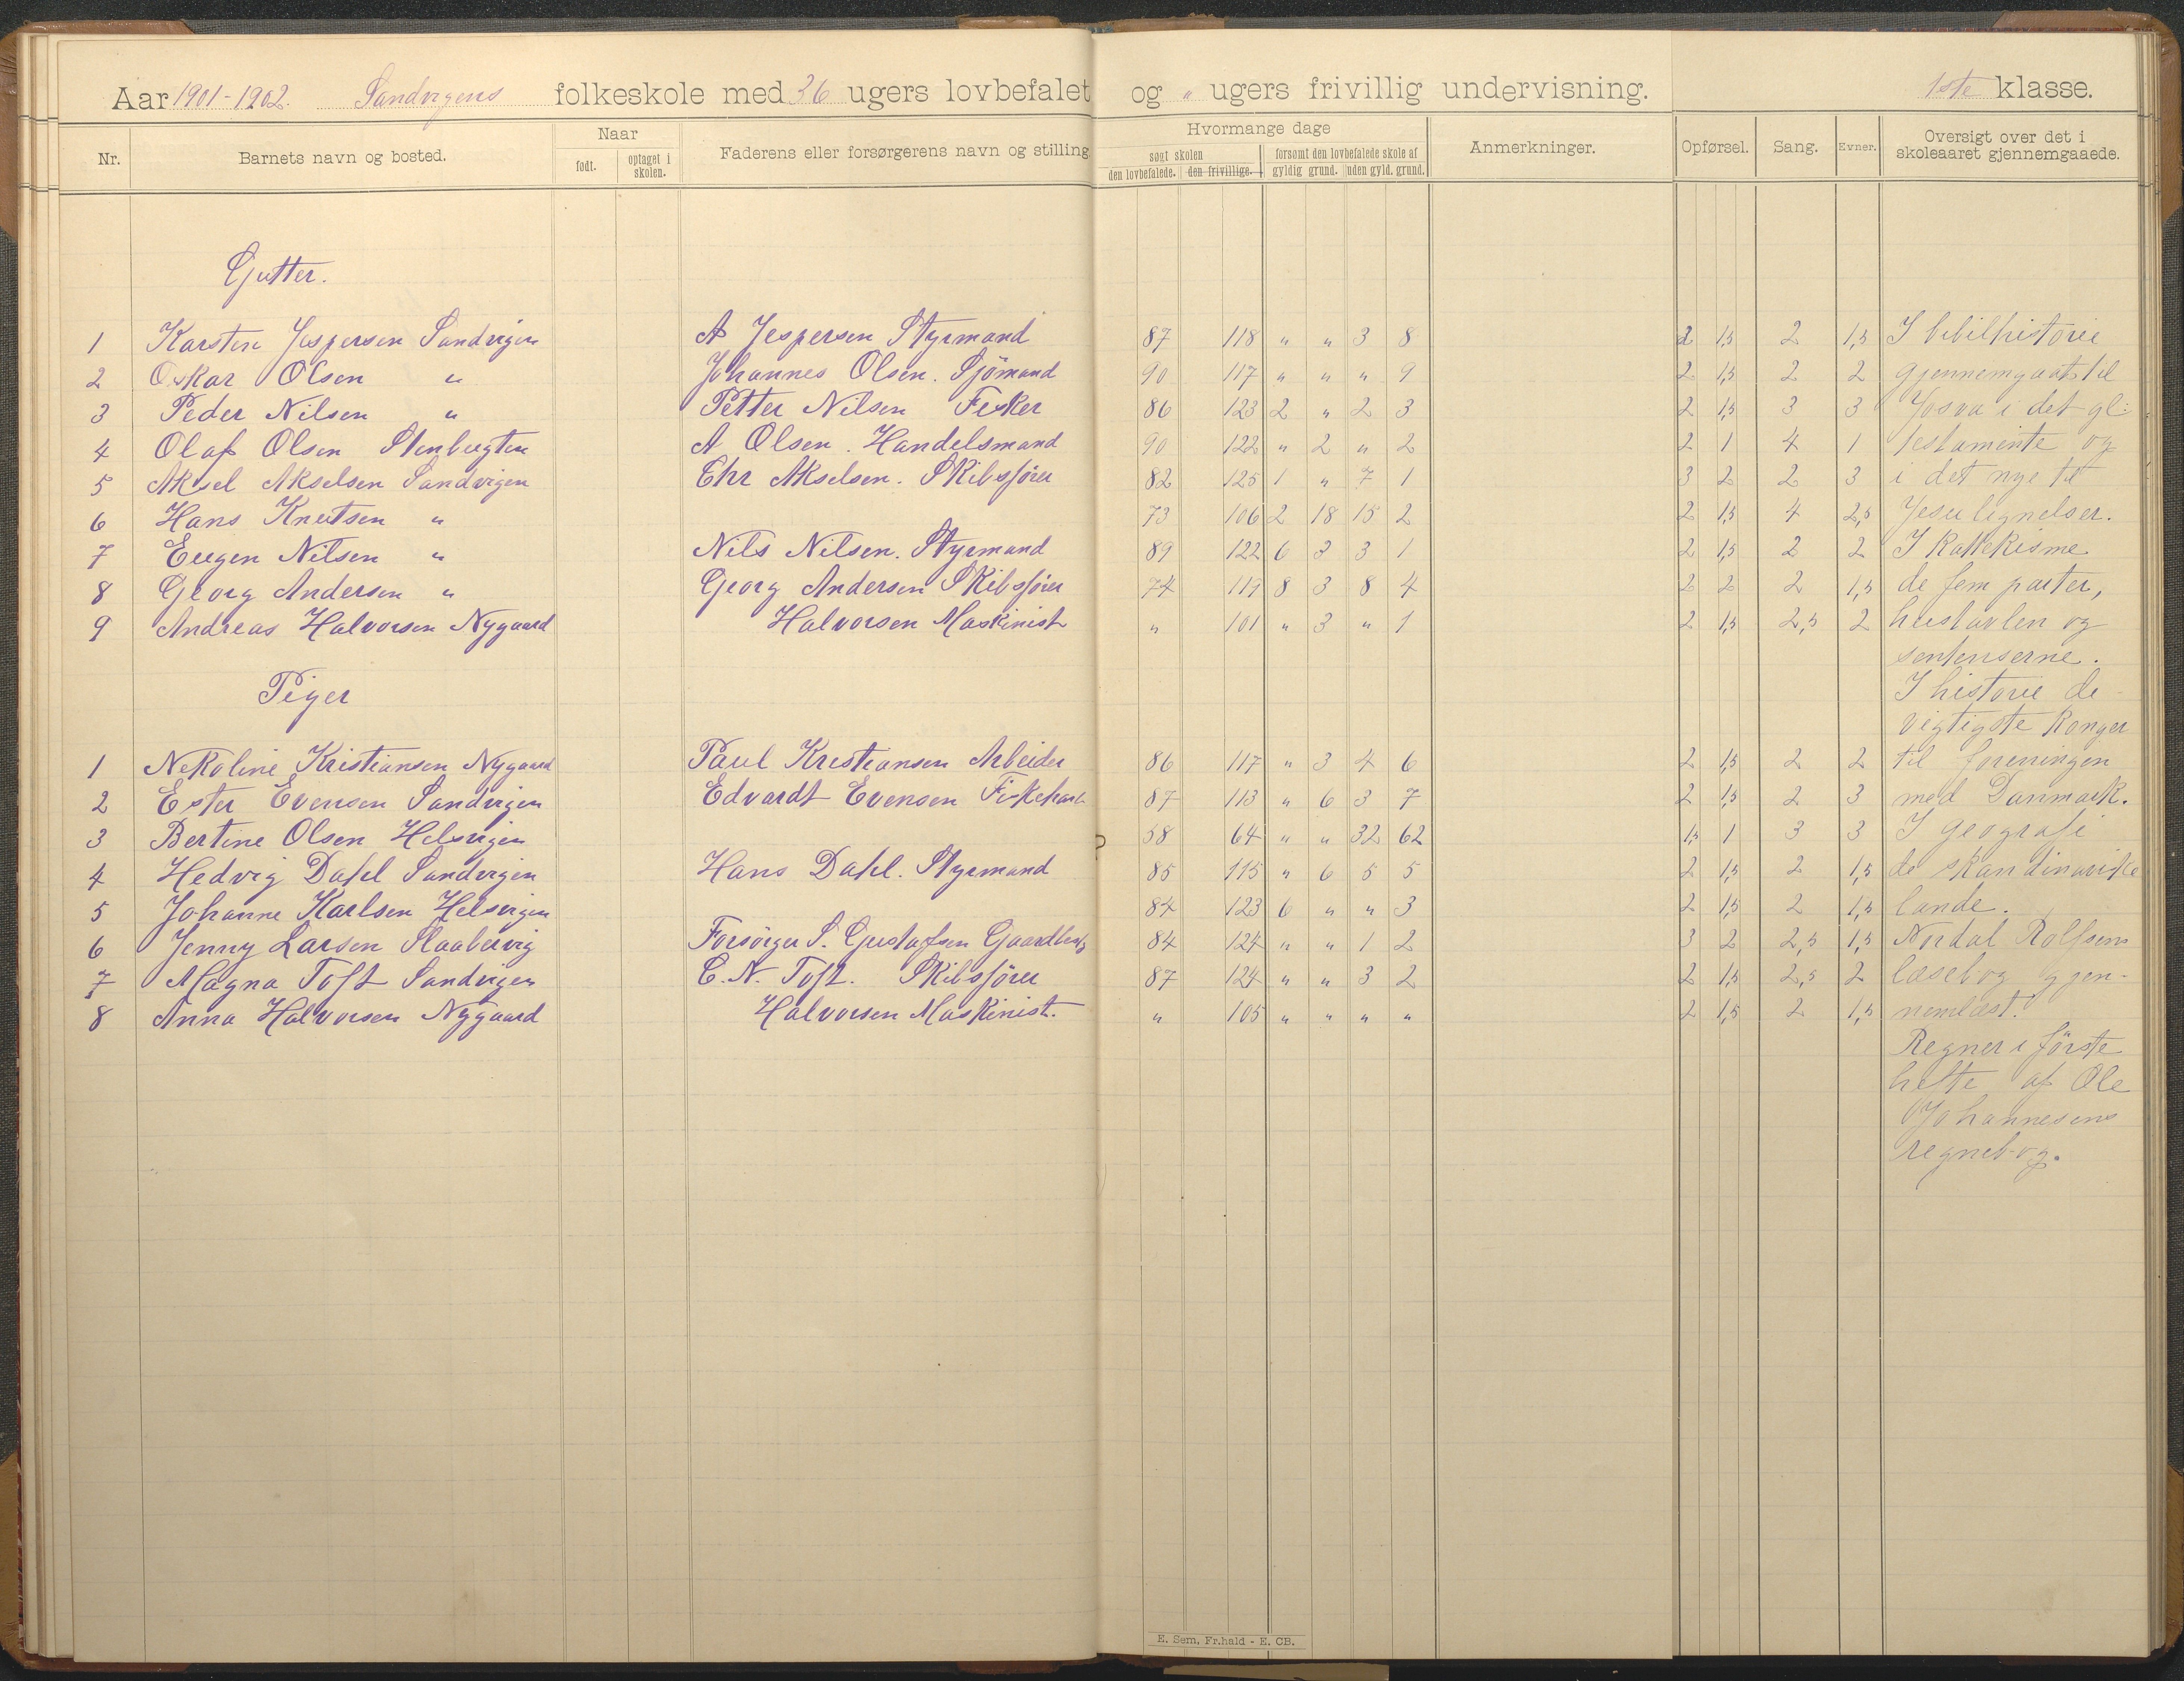 Aar 1901-1902. Sandvigens folkeskole med 36 ugers lovbefalet og " ugers frivillig undervisning. 1ste klasse.
Nr. Barnets navn og bosted. Naar født. optaget i skolen. Faderens eller forsørgerens navn og stilling Hvormange dage søgt skolen den lovbefalede. den frivillige. forsømt den lovbefalede skole af gyldig grund. uden gyld. grund. Anmerkninger. Opførsel. Sang. Evner. Oversigt over det i skoleaaret gjennemgaaede.
Gutter.
1 Karsten Jespersen Sandvigen A Jespersen Styrmand 87 118 " " 3 8 2 1,5 2 1,5 I bibilhistorie
2 Oskar Olsen " Johannes Olsen. Sjömand 90 117 " " " 9 2 1,5 2 2 gjennemgaat til
3 Peder Nilsen " Petter Nilsen Fisker 86 123 2 " 2 3 2 1,5 3 3 Josva i det gl:
4 Olaf Olsen Stenbugten A Olsen. Handelsmand 90 122 " 2 " 2 2 1 4 1 testaminte og
5 Aksel Akselsen Sandvigen Chr Akselsen. Skibsförer 82 125 1 " 7 1 3 2 2 3 i det nye til
6 Hans Knutsen " 73 106 2 18 15 2 2 1,5 4 2,5 Jesu lignelser.
7 Eugen Nilsen " Nils Nilsen. Styrmand 89 122 6 3 3 1 2 1,5 2 2 I Kattekisme
8 Georg Andersen " Georg Andersen Skibsförer 74 119 8 3 8 4 2 2 2 1,5 de fem parter,
9 Andreas Halvorsen Nygaard Halvorsen Maskinist " 101 " 3 " 1 2 1,5 2,5 2 hustavlen og
sentenserne.
Piger I historie de
vigtigste Konger
1 Nekoline Kristiansen Nygaard Paul Kristiansen Arbeider 86 117 " 3 4 6 2 1,5 2 2 til foreningen
2 Ester Evensen Sandvigen Edvardt Evensen 87 113 " 6 3 7 2 1,5 2 3 med Danmark.
3 Bertine Olsen Helsvigen 58 64 " " 32 62 1,5 1 3 3 I geografi
4 Hedvig Dahl Sandvigen Hans Dahl. Styrmand 85 115 " 6 5 5 2 1,5 2 1,5 de skandinaviske
5 Johanne Karlsen Helsvigen 84 123 6 " " 3 2 1,5 2 1,5 lande.
6 Jenny Larsen Slaabervig Forsörger S. Gustafsen 84 124 " " 1 2 3 2 2,5 1,5 Nordal Rolfsens
7 Magna Toft Sandvigen C. N. Toft. Skibsförer 87 124 " " 3 2 2 1,5 2,5 2 læsebog gjen-
8 Anna Halvorsen Nygaard Halvorsen Maskinist. " 105 " " " " 2 1,5 2 1,5 nemlæst.
Regner i förste
hefte af Ole
Johannesens
regnebog.
E. Sem, Fr.hald - E. CB.